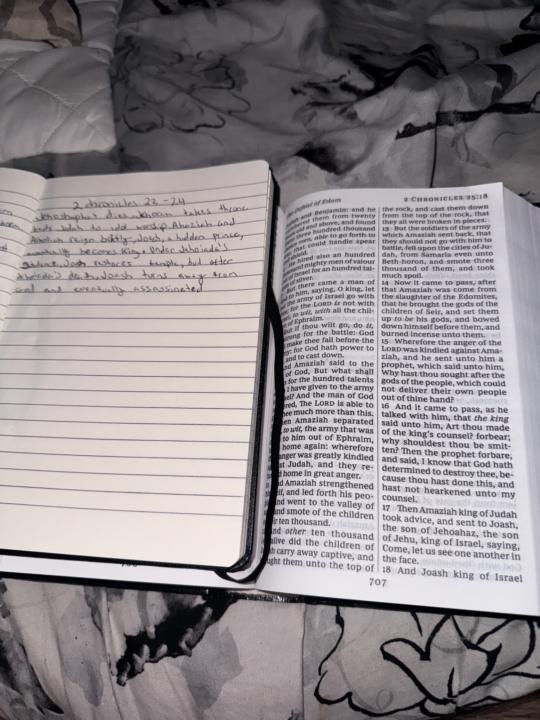 2 Chronicles 22-24
Jehoshaphat dies. Jehoram takes throne,
leads Judah to idol worship. Ahaziah and
Athaliah reign briefly. Joash, a hidden prince,
eventually becomes King. Under Jehoiada's
guidance, Joash restores temple, but after
Jehoiada's death, Joash turns away from
God and eventually assassinated
The Defeat of Edom
and Benjamin: and he
them from twenty
old and above, and found
three hundred thousand
men, able to go forth to
that could handle spear
shield.
hired also an hundred
mighty men of valour
Israel for an hundred tal-
of silver.
there came a man of
to him, saying, O king, let
the army of Israel go with
for the LORD is not with
to wit, with all the chil-
of Ephraim.
if thou wilt go, do it,
strong for the battle: God
make thee fall before the
for God hath power to
and to cast down.
Amaziah said to the
of God, But what shall
for the hundred talents
I have given to the army
And the man of God
The LORD is able to
thee much more than this.
Amaziah separated
to wit, the army that was
to him out of Ephraim,
home again: wherefore
anger was greatly kindled
Judah, and they re-
home in great anger.
Amaziah strengthened
and led forth his peo-
and went to the valley of
and smote of the children
ten thousand.
other ten thousand
alive did the children of
carry away captive, and
brought them unto the top of
2 CHRONICLES 25:18
the rock, and cast them down
from the top of the rock, that
they all were broken in pieces.
13 But the soldiers of the army
which Amaziah sent back, that
they should not go with him to
battle, fell upon the cities of Ju-
dah, from Samaria even unto
Beth-horon, and smote three
thousand of them, and took
much spoil.
14 Now it came to pass, after
that Amaziah was come from
the slaughter of the Edomites,
that he brought the gods of the
children of Seir, and set them
up to be his gods, and bowed
down himself before them, and
burned incense unto them.
15 Wherefore the anger of the
LORD was kindled against Ama-
ziah, and he sent unto him a
prophet, which said unto him,
Why hast thou sought after the
gods of the people, which could
not deliver their own people
out of thine hand?
16 And it came to pass, as he
talked with him, that the king
said unto him, Art thou made
of the king's counsel? forbear;
why shouldest thou be smit-
ten? Then the prophet forbare,
and said, I know that God hath
determined to destroy thee, be-
cause thou hast done this, and
hast not hearkened unto my
counsel.
17 Then Amaziah king of Judah
took advice, and sent to Joash,
the son of Jehoahaz, the son
of Jehu, king of Israel, saying,
Come, let us see one another in
the face.
18 And Joash king of Israel
707